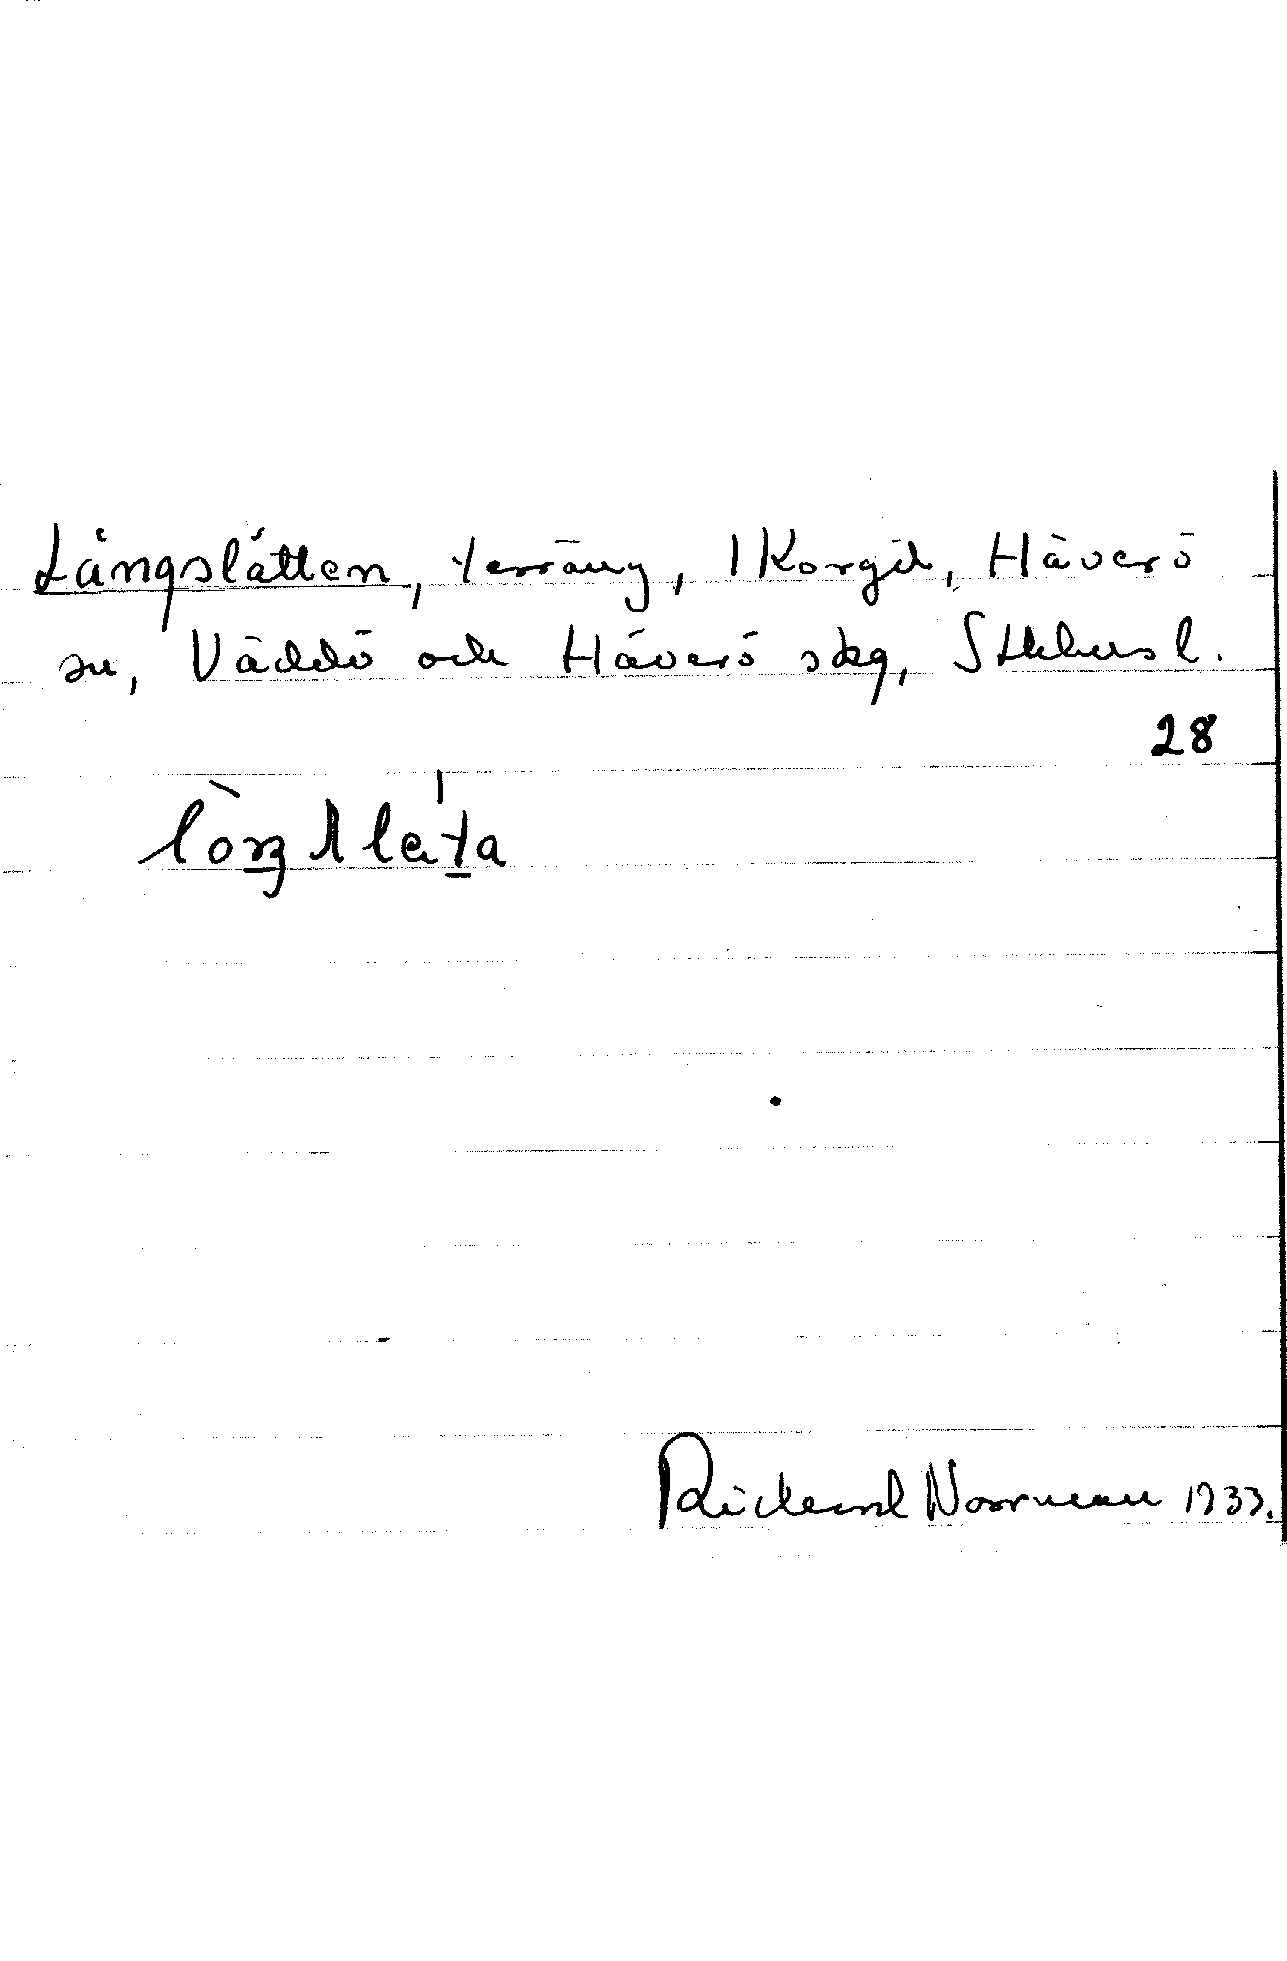 Långslätten, terräng, 1 Korgil, Häverö
sn, Väddö och Häverö skg, Sthlms l.
28
Rickard Norrman 1933.